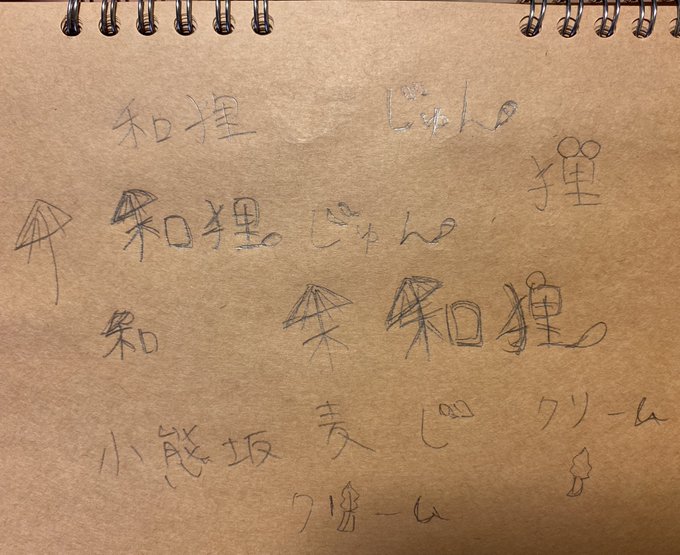 和狸 じゅん
狸
和狸 じゅん
和 和狸
小熊坂 麦 じ クリーム
クリーム